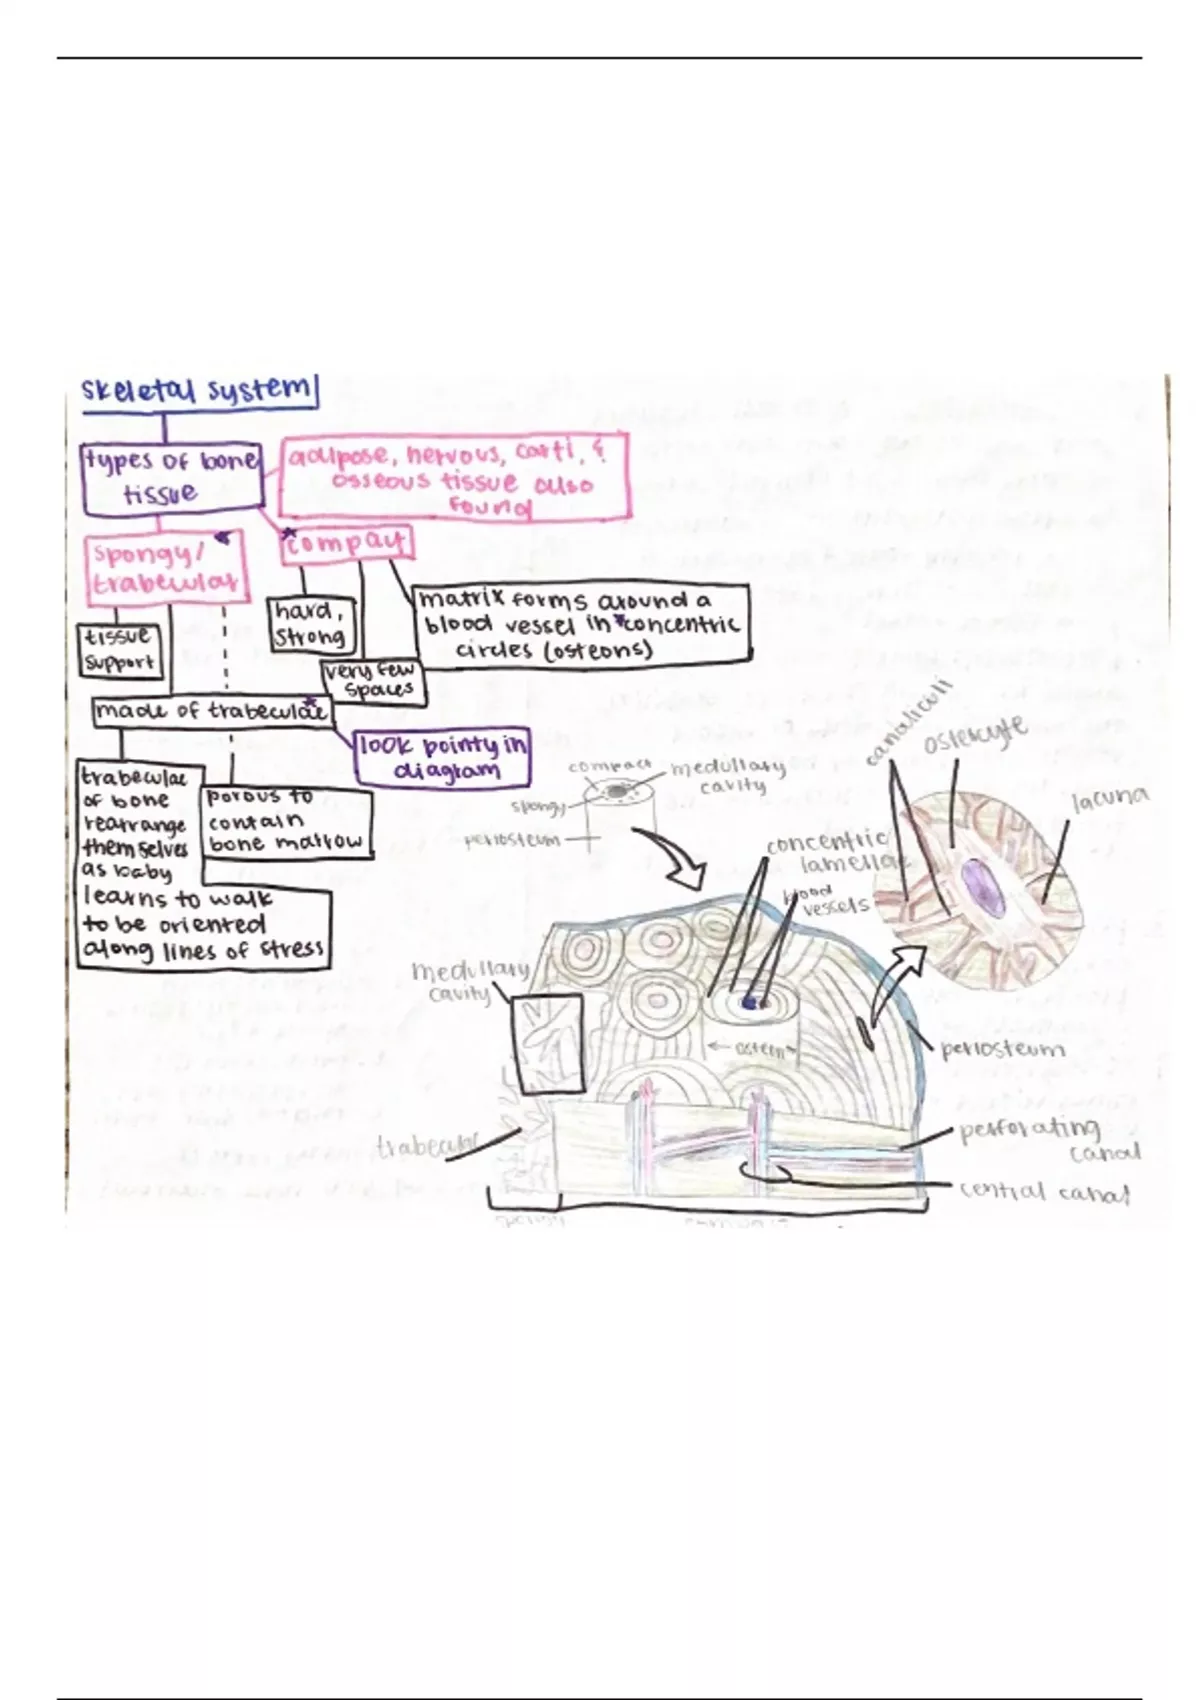 skeletal system
types of bone
tissue
adipose, nervous, carti, &
osseous tissue also
found
spongy/
trabecular
compact
tissue
support
hard,
strong
very few
spaces
matrix forms around a
blood vessel in *concentric
circles (osteons)
made of trabeculae
look pointy in
diagram
trabeculae
of bone
rearrange
themselves
as baby
learns to walk
to be oriented
along lines of stress
porous to
contain
bone marrow
compact
medullary
cavity
spongy
periosteum
canaliculi
osteocyte
lacuna
concentric
lamellae
blood
vessels
medullary
cavity
osteon
periosteum
trabecular
perforating
canal
central canal